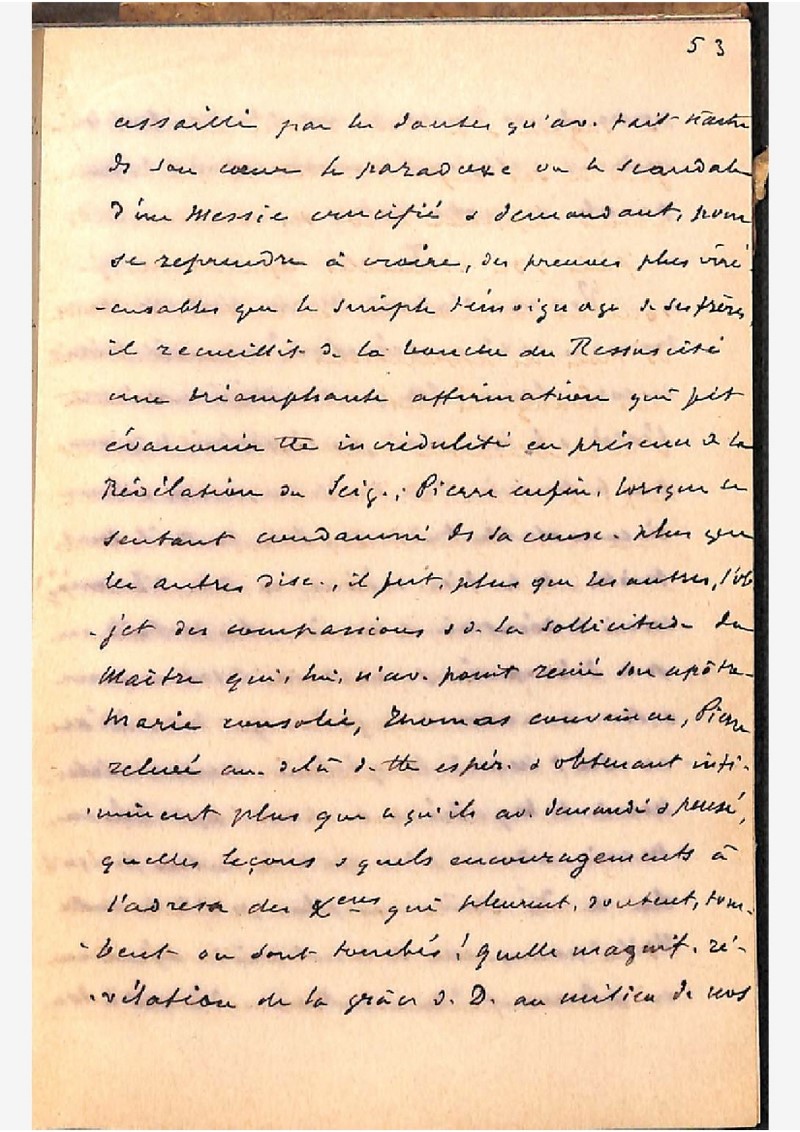 53
assailli par les doutes qu'av. fait naître
ds son cœur le paradoxe ou le scandale
d'un Messie crucifié & demandant, pour
se reprendre à croire, des preuves plus irré-
-cusables que le simple témoignage de ses frères,
il recueillit de la bouche du Ressuscité
une triomphante affirmation qui fit
évanouir tte incrédulité en présence de la
Révélation du Seig.; Pierre enfin, lorsque se
sentant condamné ds sa consc. plus que
les autres disc., il fut, plus que les autres, l'ob
-jet des compassions & d. la sollicitude du
Maître qui, lui, n'av. point renié son apôtre.
Marie consolée, Thomas convaincu, Pierre
relevé au. delà d. tte espér. & obtenant infi-
-niment plus que ce qu'ils av. demandé & pensé,
quelles leçons & quels encouragements à
l'adresse des Xens qui pleurent, doutent, tom-
-bent ou sont tombés! Quelle magnif. ré-
-vélation de la grâce d. D. au milieu de nos